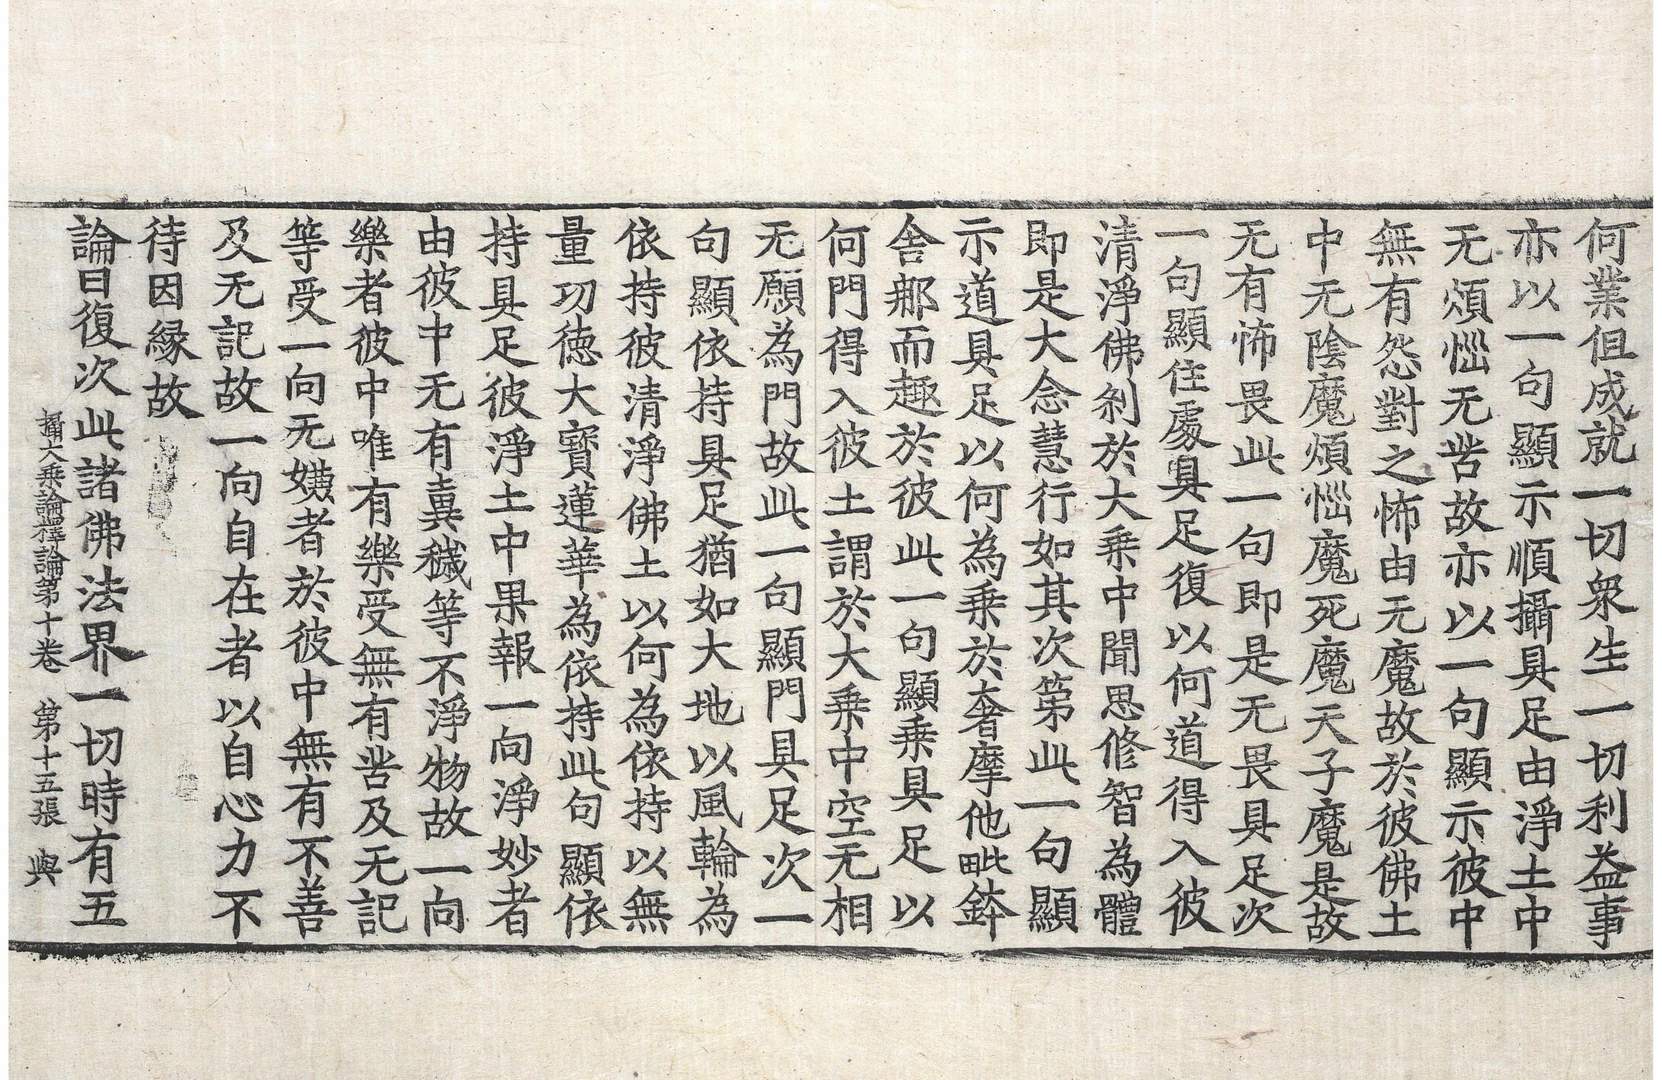 何業但成就一切衆生一切利益事
亦以一句顯示順攝具足由淨土中
无煩惱无苦故亦以一句顯示彼中
無有怨對之怖由无魔故於彼佛土
中无陰魔煩惱魔死魔天子魔是故
无有怖畏此一句即是无畏具足次
一句顯住處具足復以何道得入彼
清淨佛刹於大乘中聞思修智為體
即是大念慧行如其次第此一句顯
示道具足以何為乘於奢摩他毗鉢
舍那而趣於彼此一句顯乘具足以
何門得入彼土謂於大乘中空无相
无願為門故此一句顯門具足次一
句顯依持具足猶如大地以風輪為
依持彼清淨佛土以何為依持以無
量功德大寶蓮華為依持此句顯依
持具足彼淨土中果報一向淨妙者
由彼中无有糞穢等不淨物故一向
樂者彼中唯有樂受無有苦及无記
等受一向无嫌者於彼中無有不善
及无記故一向自在者以自心力不
待因緣故
論曰復次此諸佛法界一切時有五
攝大乘論釋論第十卷 第十五張 與